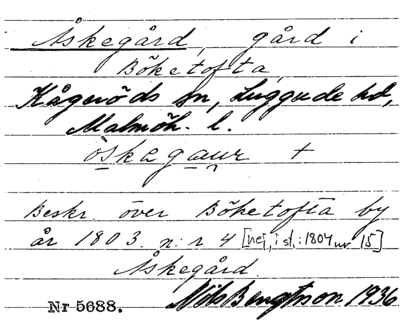 Åskegård, gård i
Böketofta,
Kågeröds sn, Luggude hd,
Malmöh. l.
öskegaur +
Beskr. över Böketofta by
år 1803. n:r 4 [nej, i st.: 1804 nr 15]
Åskegård.
Nr 5688. Nils Bengtsson 1936